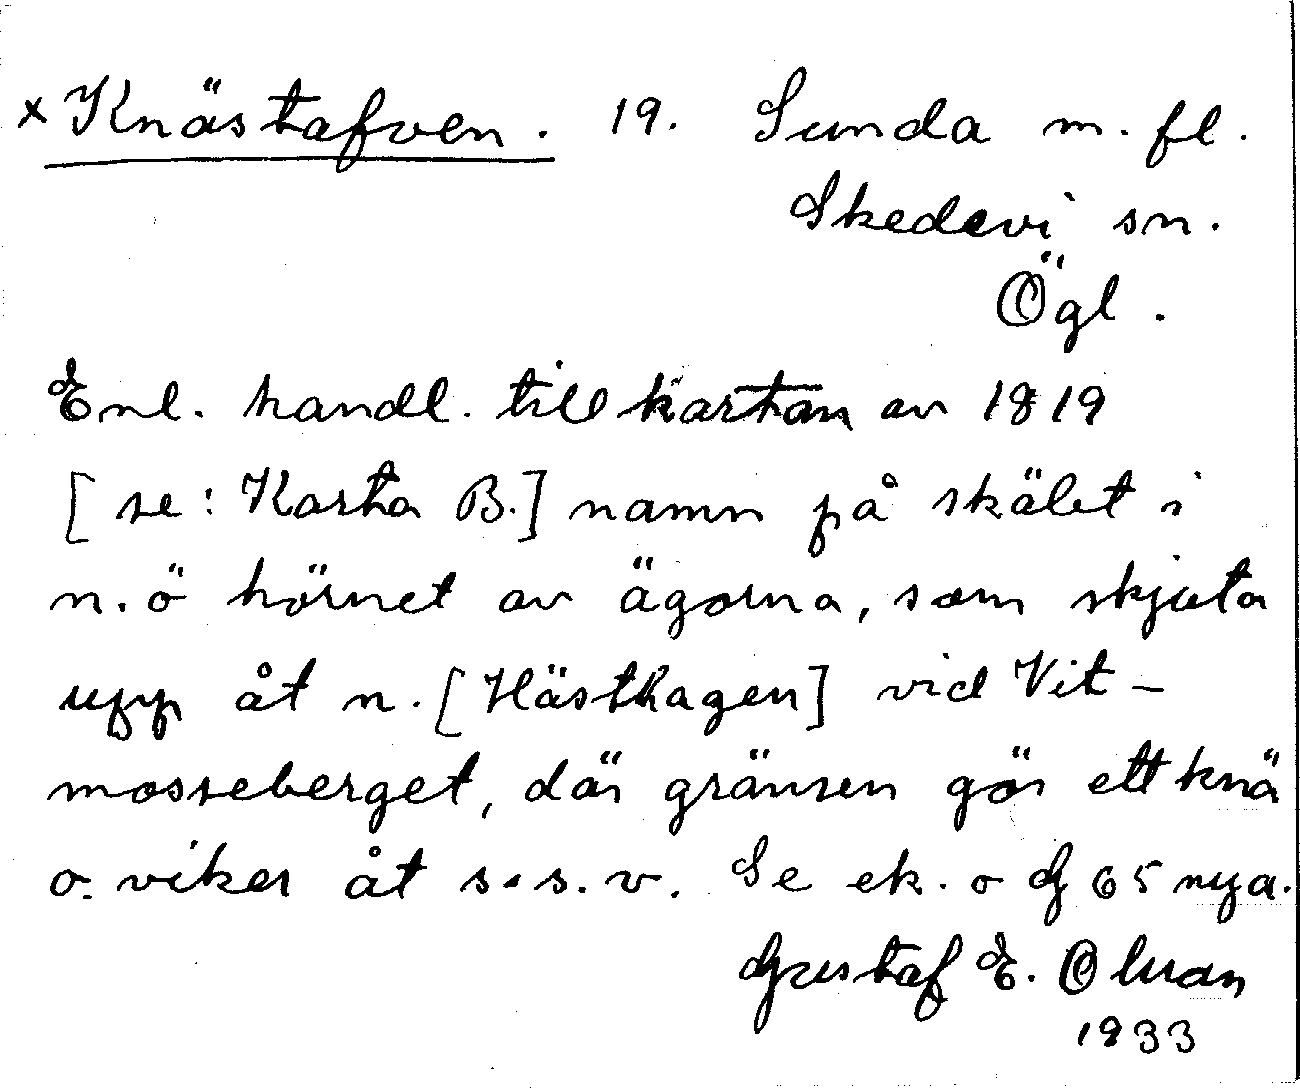 x Knästafven. 19. Sunda m. fl.
Skedevi sn.
Ögl.
Enl. handl. till kartan av 1819
[se: Karta B.] namn på skälet i
n. ö hörnet av ägorna, som skjuta
upp åt n. [Hästhagen] vid Vit-
mosseberget, där gränsen gör ett knä
o. viker åt s.s.v. Se ek. o G 65 nya.
Gustaf E. Olman
1933